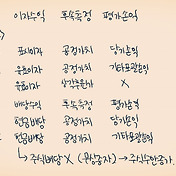 이자수익 후속측정 평가손익
표시이자 공정가치 당기손익
유효이자 공정가치 기타포괄손익
유효이자 상각후원가 X
배당수익 후속측정 평가손익
현금배당 공정가치 당기손익
현금배당 공정가치 기타포괄손익
↳ 주식배당 X (-회계처리) → 주식수만 증가